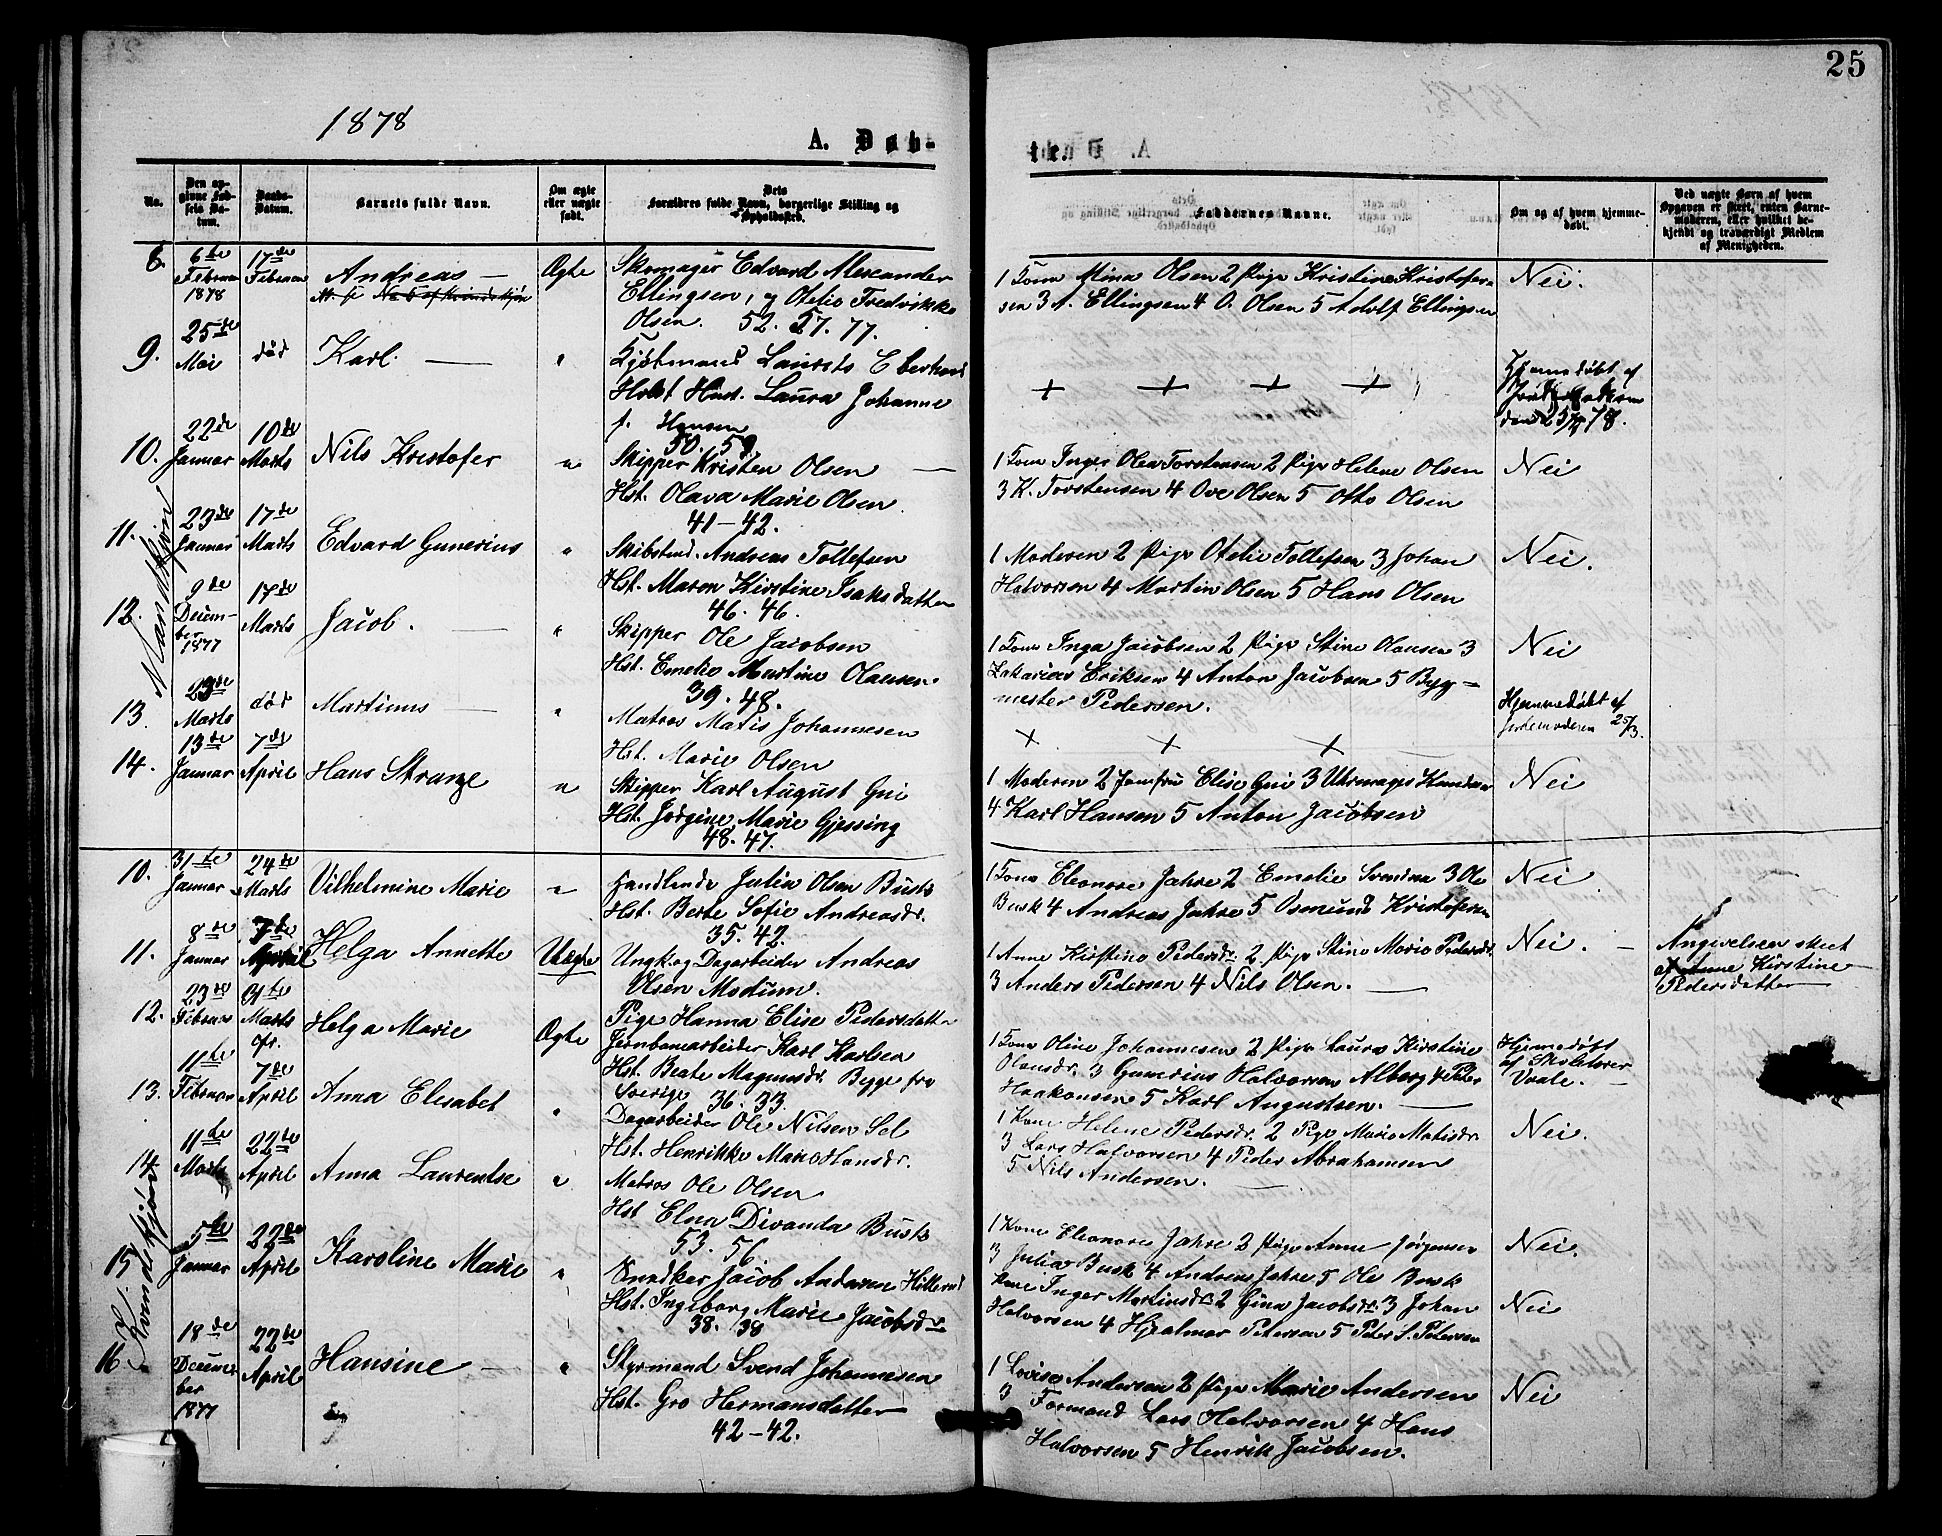 25
1878
A. Døb-
te.
No.
Den opgivne Fødsels Datum.
Daabs-Datum.
Barnets fulde Navn.
Om ægte eller uægte født.
Dets Forældres fulde Navn, borgerlige Stilling og Opholdssted.
Faddernes Navne.
Om og af hvem hjemmedøbt.
Ved uægte Børn af hvem Opgaven er skeet, enten Barnemoderen, eller hvilket bekjendt og troværdigt Medlem af Menigheden.
Mandkjøn
8. 6te Februar 1878 17de Februar Andreas — Ægte Skomager Edvard Alexander
Ellingsen, og Otelie Fredrikke
Olsen. 52. 57. 77.
1 Kone Mina Olsen 2 Pige Kristine Kristofer-
sen 3 A. Ellingsen 4 O. Olsen 5 Adolf Ellingsen
Nei.
9. 25de Mai død Karl. — " Kjøbmand Laurits Eberhard
Holst Hust. Laura Johanne
f. Hansen
50. 59.
Hjemmedøbt af
10. 22de Januar 10de Marts Nils Kristofer " Skipper Kristen Olsen —
Hst. Olava Marie Olsen
41-42.
1 Kone Inger Olea Torstensen 2 Pige Helene Olsen
3 K. Torstensen 4 Ove Olsen 5 Otto Olsen
Nei
11. 23de Januar 17de Marts Edvard Gunerius " Skibstmd. Andreas Tollefsen
Hst. Maren Kirstine Isaksdatter
46. 46.
1 Moderen 2 Pige Otelie Tollefsen 3 Johan
Halvorsen 4 Martin Olsen 5 Hans Olsen
Nei.
12. 9de December 1877 17de Marts Jacob. — " Skipper Ole Jacobsen
Hst. Emelie Martine Olausen
39. 48.
1 Kone Inga Jacobsen 2 Pige Stine Olausen 3
Zakarias Eriksen 4 Anton Jacobsen 5 Byg-
mester Pedersen.
Nei
13. 23de Marts død Martinus — " Matros Matis Johannesen
Hst. Marie Olsen
Hjemmedøbt af
Jordemoderen 25/3.
14. 13de Januar 7de April Hans Strange " Skipper Karl August Gui
Hst. Jørgine Marie Gjessing
48. 47.
1 Moderen 2 Jomfru Elise Gui 3 Uhrmager Knudsen
4 Karl Hansen 5 Anton Jacobsen
Nei
Kvindekjøn
10. 31te Januar 24de Marts Vilhelmine Marie " Handlende Julius Olsen Busk
Hst. Berte Sofie Andreasdr.
35. 42.
1 Kone Eleonore Jahre 2 Emelie Svendsen 3 Ole
Busk 4 Andreas Jahre 5 Osmund Kristofersen
Nei
11. 8de Januar 7de April Helga Annette Uægte Ungk. og Dagarbeider Andreas
Olsen Modum.
Pige Hanna Elise Pedersdatter
1 Anne Kirstine Pedersdr. 2 Pige Stine Marie Pedersdr.
3 Anders Pedersen 4 Nils Olsen. —
Nei. —
Angivelsen skeet
af Anne Kirstine
Pedersdatter
12. 23de Februar Marts Helga Marie Ægte Jernbanearbeider Karl Karlsen
Hst. Beate Magnusdr. Bygge fra
Sverige 36. 33.
1 Kone Oline Johannesen 2 Pige Laura Kirstine
Olausdr. 3 Gunerius Halvorsen Alberg 4 Peter
Haakonsen 5 Karl Augustsen. —
Hjemmedøbt
af Skolelærer
Vaale. —
13. 11te Februar 7de April Anna Elisabet " Dagarbeider Ole Nilsen Sol
Hst. Henrikke Marie Hansdr.
1 Kone Helene Pedersdr. 2 Pige Marie Matisdr.
3 Lars Halvorsen 4 Peder Abrahamsen
5 Nils Andersen. —
Nei.
14. 11te Marts 22de April Anna Laurentse " Matros Ole Olsen
Hst. Elen Divanda Busk
53. 56.
1 Kone Eleonore Jahre 2 Pige Anne Jørgensen
3 Julius Busk 4 Andreas Jahre 5 Ole Busk
Nei.
15. 5te Januar 22de April Karoline Marie " Snedker Jacob Andersen Hillerud
Hst. Ingeborg Marie Jacobsdr
38. 38
Kone Inger Martinsdr. 2 Gina Jacobsdr. 3 Johan
Halvorsen 4 Hjalmar Petersen 5 Peter S. Petersen
Nei
16. 18de December 1877 22de April Hansine — " Styrmand Svend Johannesen
Hst. Gro Hermansdatter
42-42.
1 Lovise Andersen 2 Pige Marie Andersen
3 Formand Lars Halvorsen 4 Hans
Halvorsen 5 Henrik Jacobsen.
Nei